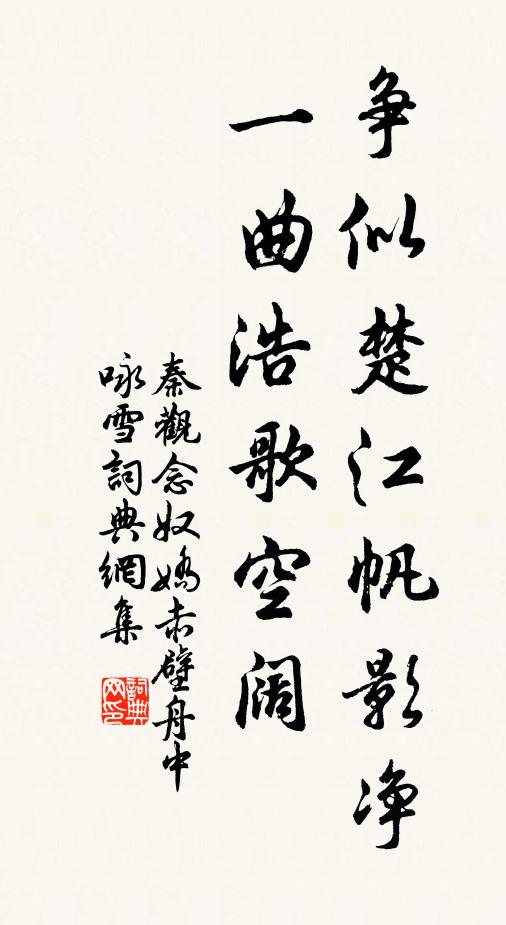 争似楚江帆影净
一曲浩歌空阔
秦觀念奴嬌赤壁舟中
咏雪詞典網集
詞典
网印